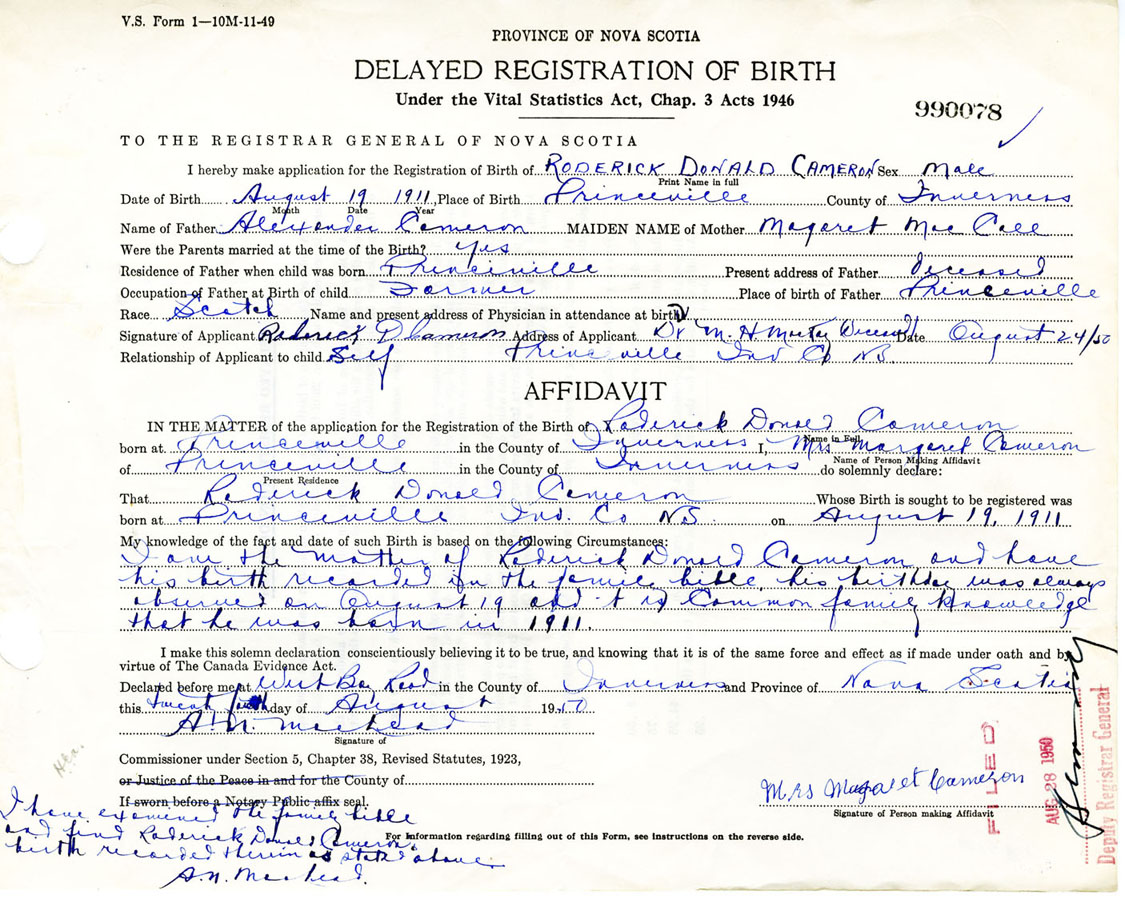 V.S. Form 1—10M-11-49
PROVINCE OF NOVA SCOTIA
DELAYED REGISTRATION OF BIRTH
Under the Vital Statistics Act, Chap. 3 Acts 1946
990078
TO THE REGISTRAR GENERAL OF NOVA SCOTIA
I hereby make application for the Registration of Birth of RODERICK DONALD CAMERON Sex Male
Print Name in full
Date of Birth August 19 1911, Place of Birth Princeville County of Inverness
Month Date Year
Name of Father Alexander Cameron MAIDEN NAME of Mother Magaret Mac Call
Were the Parents married at the time of the Birth? yes
Residence of Father when child was born Princeville Present address of Father deceased
Occupation of Father at Birth of child Farmer Place of birth of Father Princeville
Race Scotch Name and present address of Physician in attendance at birth
Signature of Applicant Roderick D Cameron Address of Applicant Dr M. H. Date August 24/50
Relationship of Applicant to child Self Princeville Inv Co NS.
AFFIDAVIT
IN THE MATTER of the application for the Registration of the Birth of Roderick Donald Cameron
Name in Full
born at Princeville in the County of Inverness I, Mrs Margaret Cameron
Name of Person Making Affidavit
of Princeville in the County of Inverness do solemnly declare:
Present Residence
That Roderick Donald Cameron Whose Birth is sought to be registered was
born at Princeville Inv. Co NS. on August 19, 1911
My knowledge of the fact and date of such Birth is based on the following Circumstances:
I am the mother of Roderick Donald Cameron and have
his birth recorded in the family bible, his birthday was always
observed on August 19 and it is Common family knowledge
that he was born in 1911.
I make this solemn declaration conscientiously believing it to be true, and knowing that it is of the same force and effect as if made under oath and by
virtue of The Canada Evidence Act.
Declared before me at West Bay Road in the County of Inverness and Province of Nova Scotia
this twenty fourth day of August 1950
A. N. MacLead
Signature of
Commissioner under Section 5, Chapter 38, Revised Statutes, 1923,
or Justice of the Peace in and for the County of
If sworn before a Notary Public affix seal.
Mrs Magaret Cameron
Signature of Person making Affidavit
FILED
AUG 28 1950
Deputy Registrar General
I have examined the family bible
and find Roderick Donald Cameron's
birth recorded therein as stated above
A. N. MacLead.
For information regarding filling out of this Form, see instructions on the reverse side.